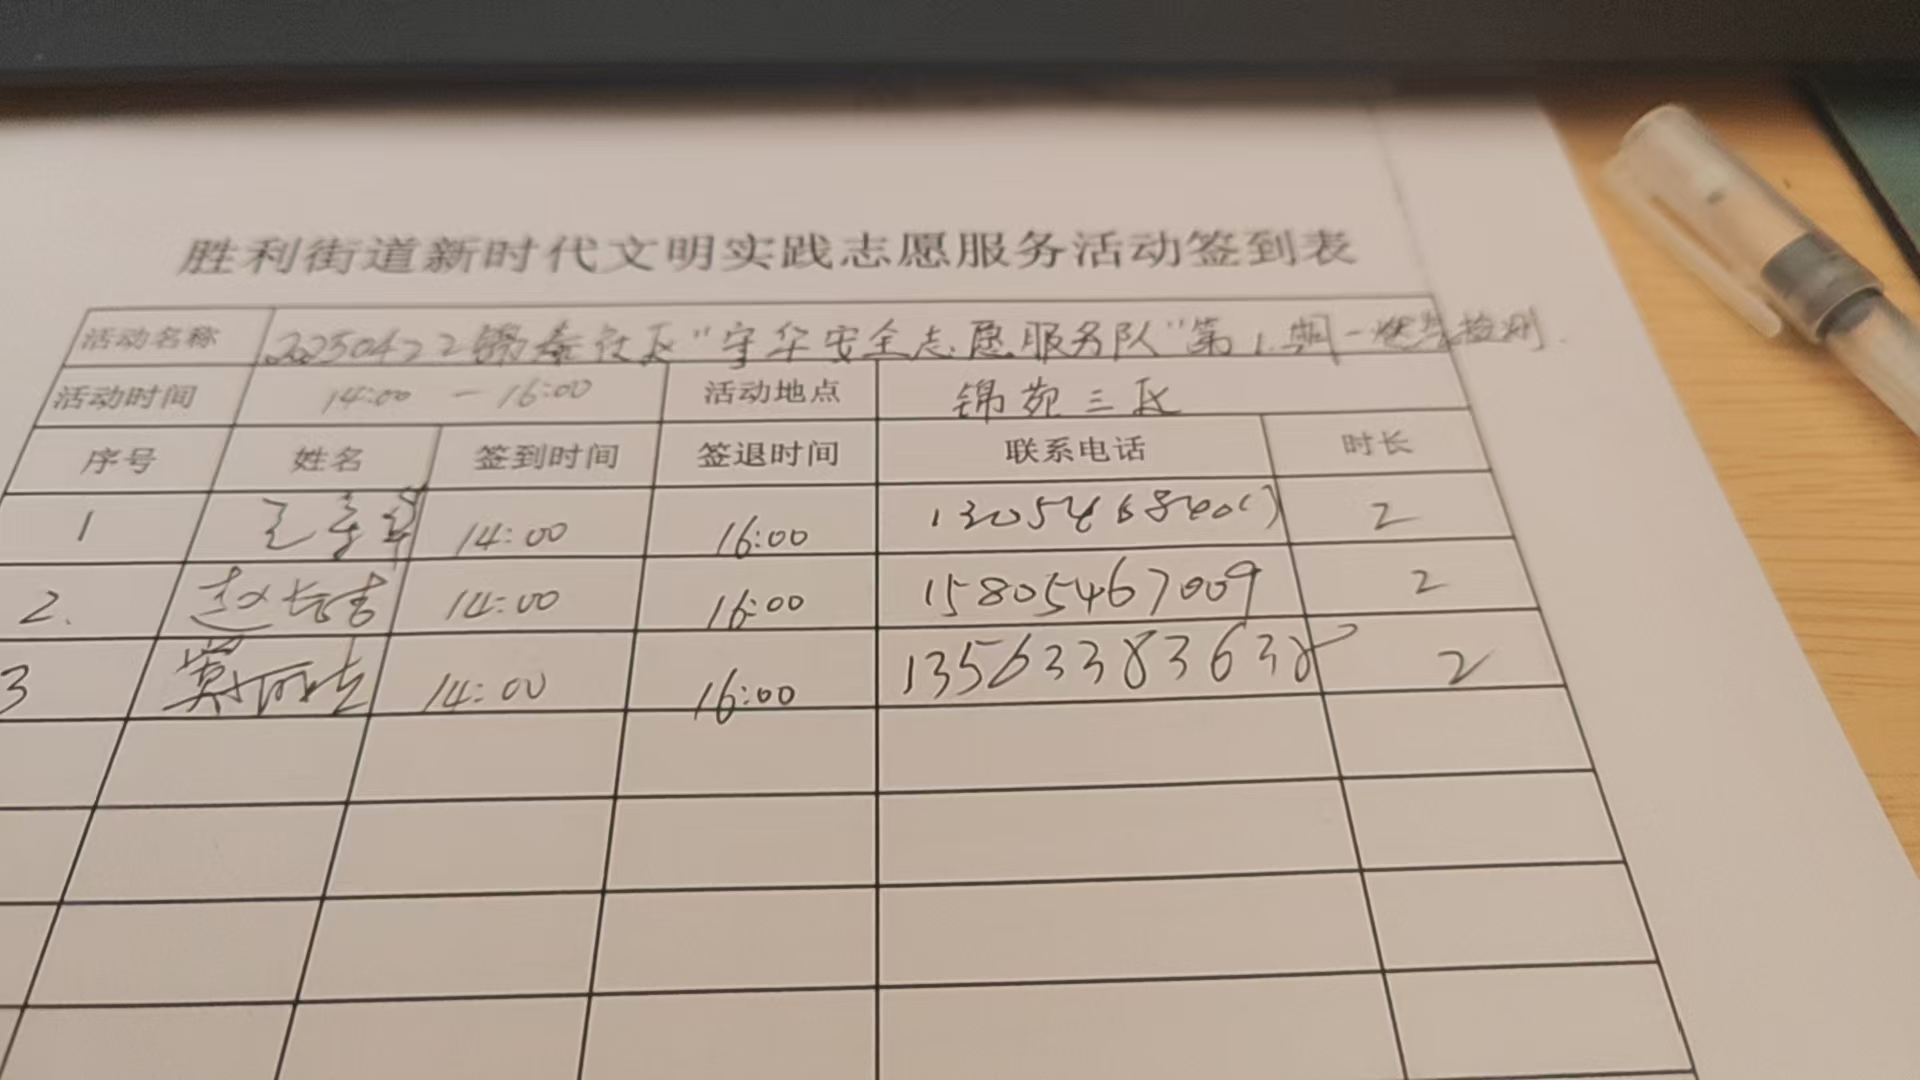 胜利街道新时代文明实践志愿服务活动签到表
活动名称 20250422锦泰社区"守华安全志愿服务队"第1期-燃气检测
活动时间 14:00 - 16:00 活动地点 锦苑三区
序号 姓名 签到时间 签退时间 联系电话 时长
1 14:00 16:00 2
2. 赵长吉 14:00 16:00 15805467009 2
3 14:00 16:00 13563383638 2